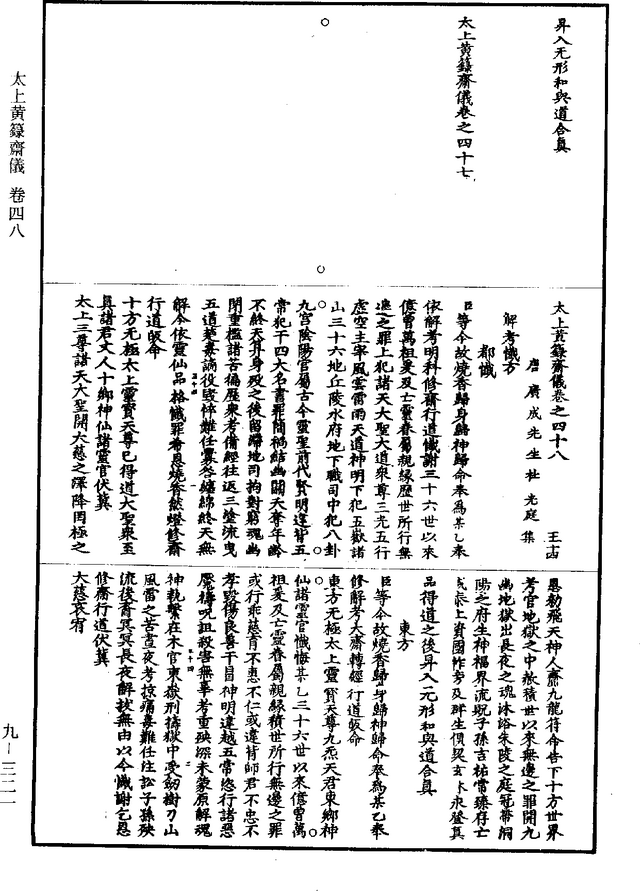 昇入无形和與道合真
太上黄籙齋儀卷之四十七
太上黄籙齋儀卷之四十八
唐廣成先生杜光庭集
解考懺方
都懺
臣等今故燒香歸身歸神歸命奉為某乙奉
依解考明科修齋行道懺謝三十六世以來
億曾萬祖爰及亡靈眷屬親緣歷世所行無
邊之罪上犯諸天大聖大道衆尊三光五行
虚空主宰風雲雷雨天道神明下犯五嶽諸
山三十六地丘陵水府地下職司中犯八卦
九宫陰陽官屬古今靈聖前代賢明違背五
常犯干四大名書罪簡禍結幽關天奪年齡
不終天算身殁之後留滯地司拘對窮魂幽
閉重檻諸苦備歷衆考備經往返三塗流曳
五道荼毒謫役毁悴難任纍劫纏綿終天無
解今依靈仙品格懺罪希恩燒香然燈修齋
行道皈命
十方无極太上靈寶天尊已得道大聖衆至
真諸君丈人十鄉神仙諸靈官伏冀
太上三尊諸天大聖開大慈之澤降罔極之
恩勑飛天神人齎九龍符命告下十方世界
考官地獄之中赦積世以來無邊之罪開九
幽地獄出長夜之魂沐浴朱陵之庭冠帶洞
陽之府生神福界流貺子孫吉祐常臻存亡
咸泰上資國祚旁及群生俱契玄卞永登真
品得道之後昇入无形和與道合真
東方
臣等今故燒香歸身歸神歸命奉為某乙奉
修解考大齋轉經行道皈命
東方无極太上靈寶天尊九炁天君東鄉神
仙諸靈官懺悔某乙三十六世以來億曾萬
祖爰及亡靈眷屬親緣積世所行無邊之罪
或行乖慈育不惠不仁或違背師君不忠不
孝毁傷良善干冒神明違越五常恣行諸惡
厭禱呪詛殺害無辜考重殃深未蒙原解魂
神執繫在木官東嶽刑擣獄中受劒樹刀山
風雷之苦晝夜考掠痛毒難任注訟子孫殃
流後裔冥冥長夜解拔無由以今懺謝乞恩
修齋行道伏冀
大慈哀宥
太上黄籙齋儀 卷四八
九—三二一